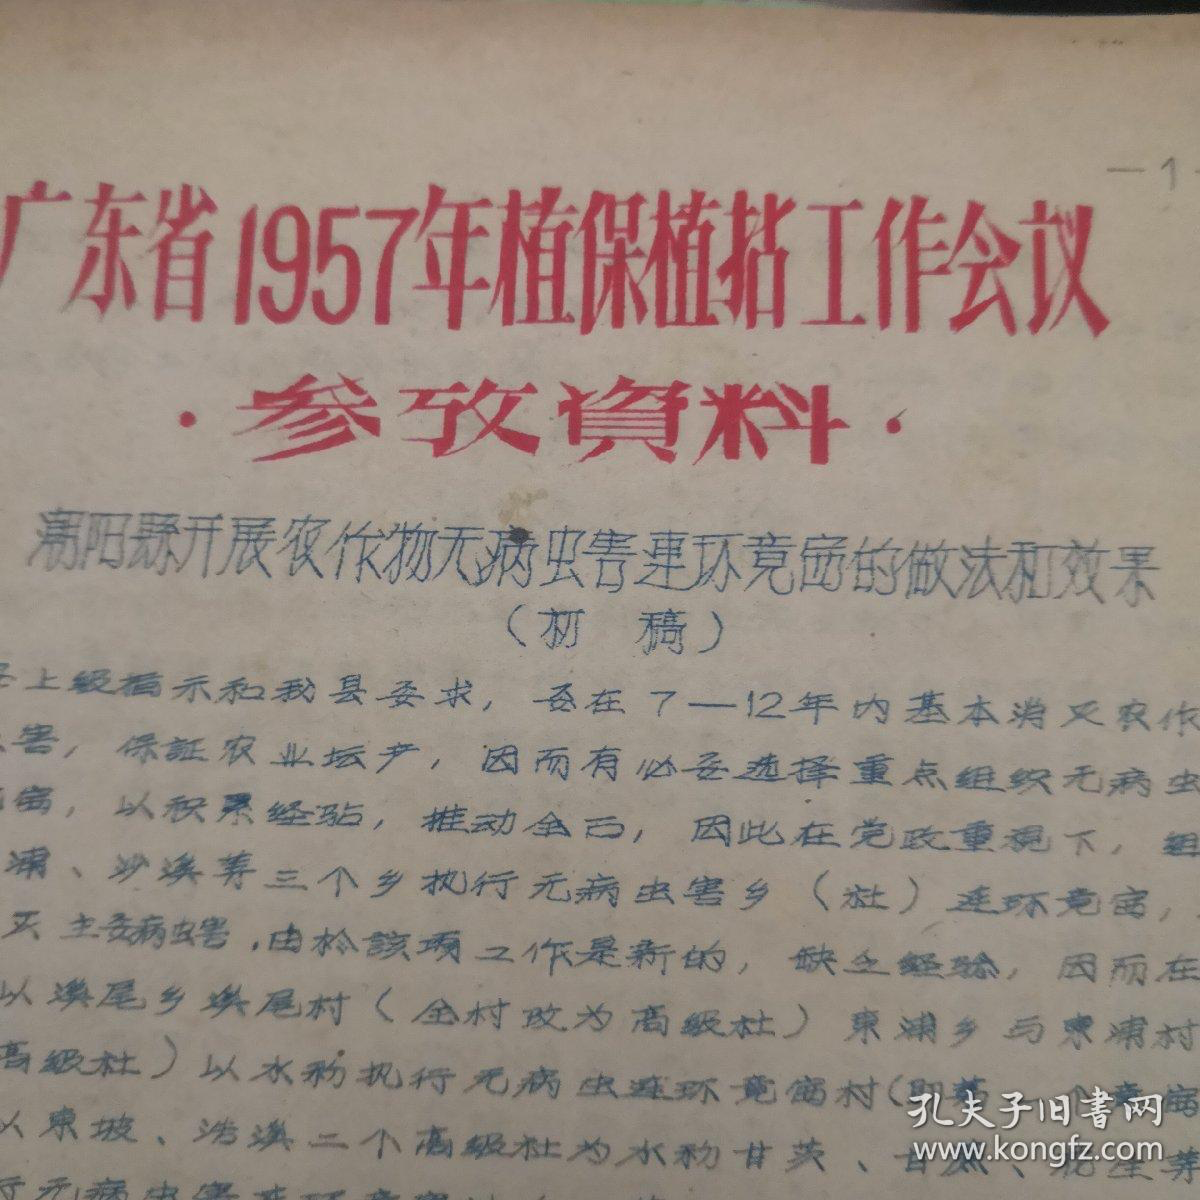 —1-
广东省1957年植保植拈工作会议
·参攷資料·
潮阳县开展农作物无病虫害連环竟窗的做法和效果
（初 稿）
上級指示和我县委求，委在7—12年内基本消灭农作
害，保証农业坛产，因而有必委选择重点組织无病虫
窗，以积累经驗，推动全面，因此在党政重視下，組
浦、沙溪等三个乡执行无病虫害乡（社）連环竟窗，
灭主委病虫害，由於該項工作是新的，缺乏經驗，因而在
以溪尾乡溪尾村（全村改为高級社）東浦乡与東浦村
高級社）以水稻执行无病虫連环竟窗村（即
以東坡、浩溪二个高級社为水稻甘茨、甘
行无病虫害
孔夫子旧書网
www.kongfz.com